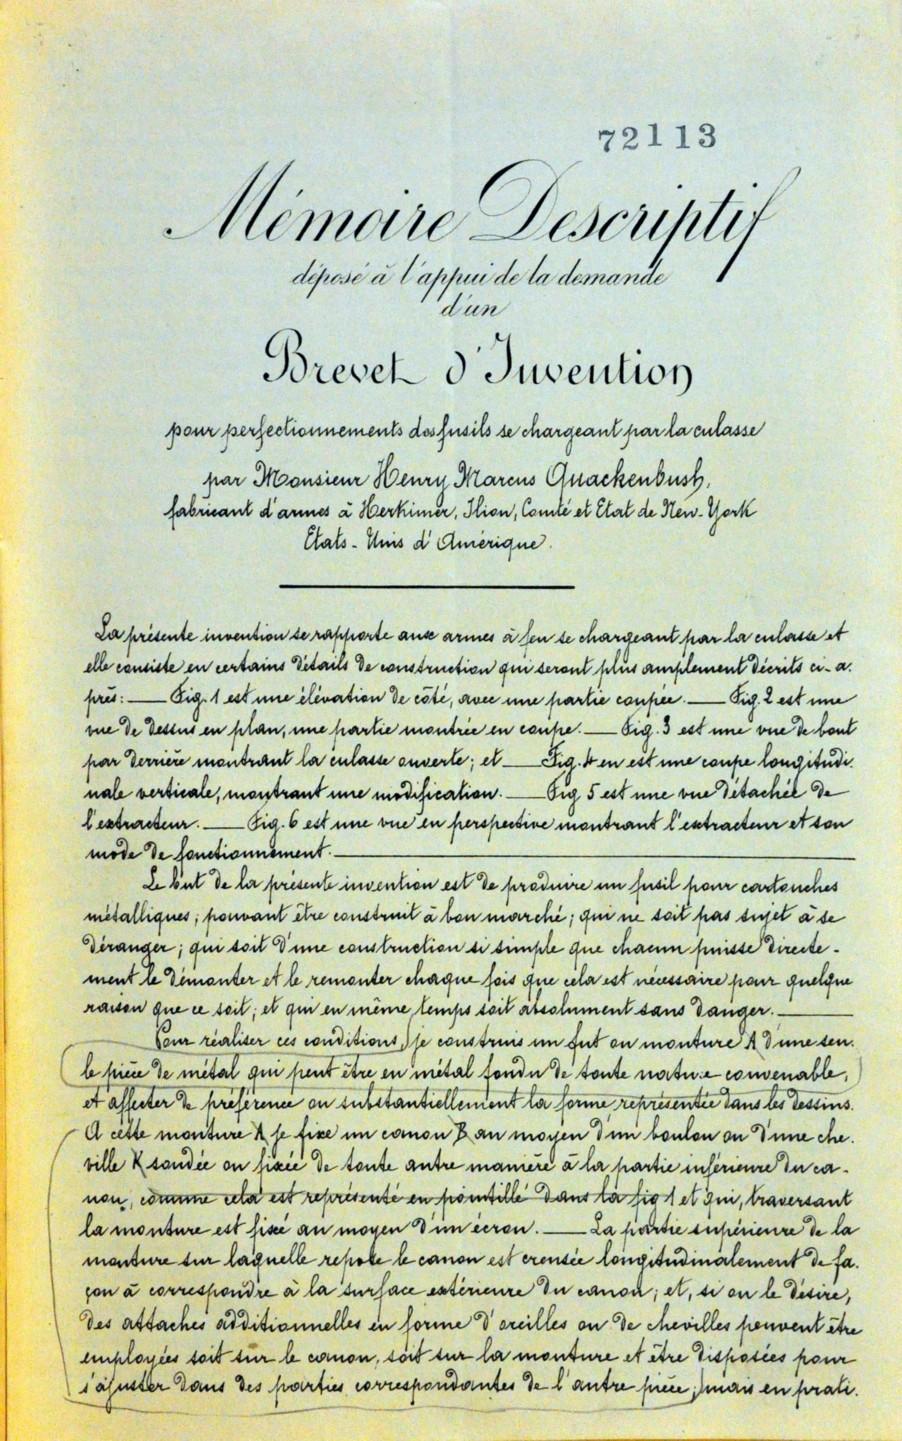 72113
Mémoire Descriptif
déposé à l'appui de la demande
d'un
Brevet d'Invention
pour perfectionnements des fusils se chargeant par la culasse
par Monsieur Henry Marcus Quackenbush,
fabricant d'armes à Herkimer, Ilion, Comté et Etat de New-York
Etats-Unis d'Amérique.
La présente invention se rapporte aux armes à feu se chargeant par la culasse et
elle consiste en certains détails de construction qui seront plus amplement décrits ci-a.
près: — Fig. 1 est une élévation de côté, avec une partie coupée. — Fig. 2 est une
vue de dessus en plan, une partie montrée en coupe. — Fig. 3 est une vue de bout
par derrière montrant la culasse ouverte; et — Fig. 4 en est une coupe longitudi.
nale verticale, montrant une modification. — Fig 5 est une vue détachée de
l'extracteur. — Fig. 6 est une vue en perspective montrant l'extracteur et son
mode de fonctionnement. —
Le but de la présente invention est de produire un fusil pour cartouches
métalliques; pouvant être construit à bon marché; qui ne soit pas sujet à se
déranger; qui soit d'une construction si simple que chacun puisse directe-
ment le démonter et le remonter chaque fois que cela est nécessaire pour quelque
raison que ce soit; et qui en même temps soit absolument sans danger. —
Pour réaliser ces conditions, je construis un fut ou monture A d'une seu.
le pièce de métal qui peut être en métal fondu de toute nature convenable,
et affecter de préférence ou substantiellement la forme représentée dans les dessins.
A cette monture A je fixe un canon B au moyen d'un boulon ou d'une che.
ville K soudée ou fixée de toute autre manière à la partie inférieure du ca-
non, comme cela est représenté en pointillé dans la fig 1 et qui, traversant
la monture est fixé au moyen d'un écrou. — La partie supérieure de la
monture sur laquelle repose le canon est creusée longitudinalement de fa.
çon à correspondre à la surface extérieure du canon; et, si on le désire,
des attaches additionnelles en forme d'oreilles ou de chevilles peuvent être
employées soit sur le canon, soit sur la monture et être disposées pour
s'ajuster dans des parties correspondantes de l'autre pièce; mais en prati.